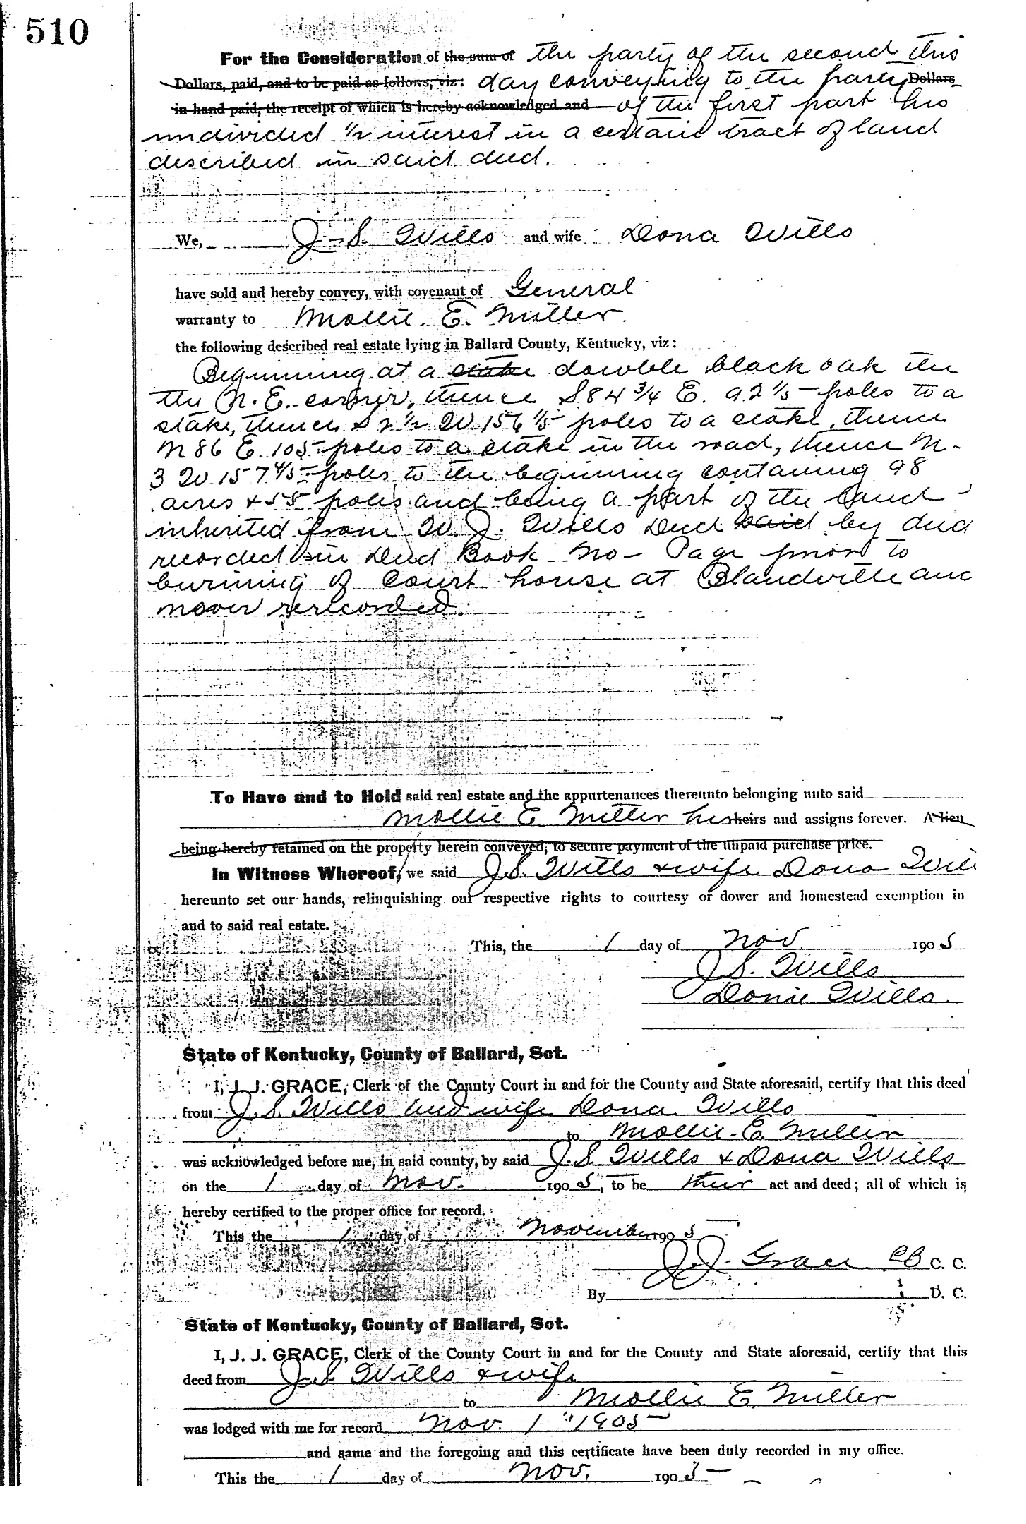 510
For the Consideration of the sum of the party of the second this
Dollars, paid, and to be paid as follows, viz: day conveying to the party Dollars
in hand paid, the receipt of which is hereby acknowledged and of the first part his
undivided 1/2 interest in a certain tract of land
described in said deed.
We, J. S. Wills and wife Dona Wills
have sold and hereby convey, with covenant of General
warranty to Mollie. E. Miller
the following described real estate lying in Ballard County, Kentucky, viz:
Beginning at a stake double black oak the
the N. E. corner, thence S 84 3/4 E. 92 1/5 poles to a
stake, thence S 2 1/2 W 156 1/5 poles to a stake, thence
N 86 E. 105 poles to a stake in the road, thence N.
3 W 157 4/5 poles to the beginning containing 98
acres & 55 poles and being a part of the land
inherited from W. J. Wills Deed said by deed
recorded in Deed Book No - Page prior to
burning of Court house at Blandville and
never rerecorded.
To Have and to Hold said real estate and the appurtenances thereunto belonging unto said
Mollie E Miller her heirs and assigns forever. A lien
being hereby retained on the property herein conveyed, to secure payment of the unpaid purchase price.
In Witness Whereof, we said J. S. Wills & wife Dona Will
hereunto set our hands, relinquishing our respective rights to courtesy or dower and homestead exemption in
and to said real estate.
This, the 1 day of Nov 1905
J S. Wills
Donie Wills.
State of Kentucky, County of Ballard, Sct.
I, J. J. GRACE, Clerk of the County Court in and for the County and State aforesaid, certify that this deed
from J. S. Wills and wife Dona Wills
to Mollie E Miller
was acknowledged before me, in said county, by said J. S Wills & Dona Wills
on the 1 day of Nov. 1905, to be their act and deed; all of which is
hereby certified to the proper office for record.
This the 1 day of November 1905
J. J. Grace CB C. C.
By D. C.
State of Kentucky, County of Ballard, Sct.
I, J. J. GRACE, Clerk of the County Court in and for the County and State aforesaid, certify that this
deed from J. S. Wills & wife
to Mollie E Miller
was lodged with me for record Nov. 1" 1905
and same and the foregoing and this certificate have been duly recorded in my office.
This the 1 day of Nov. 1905